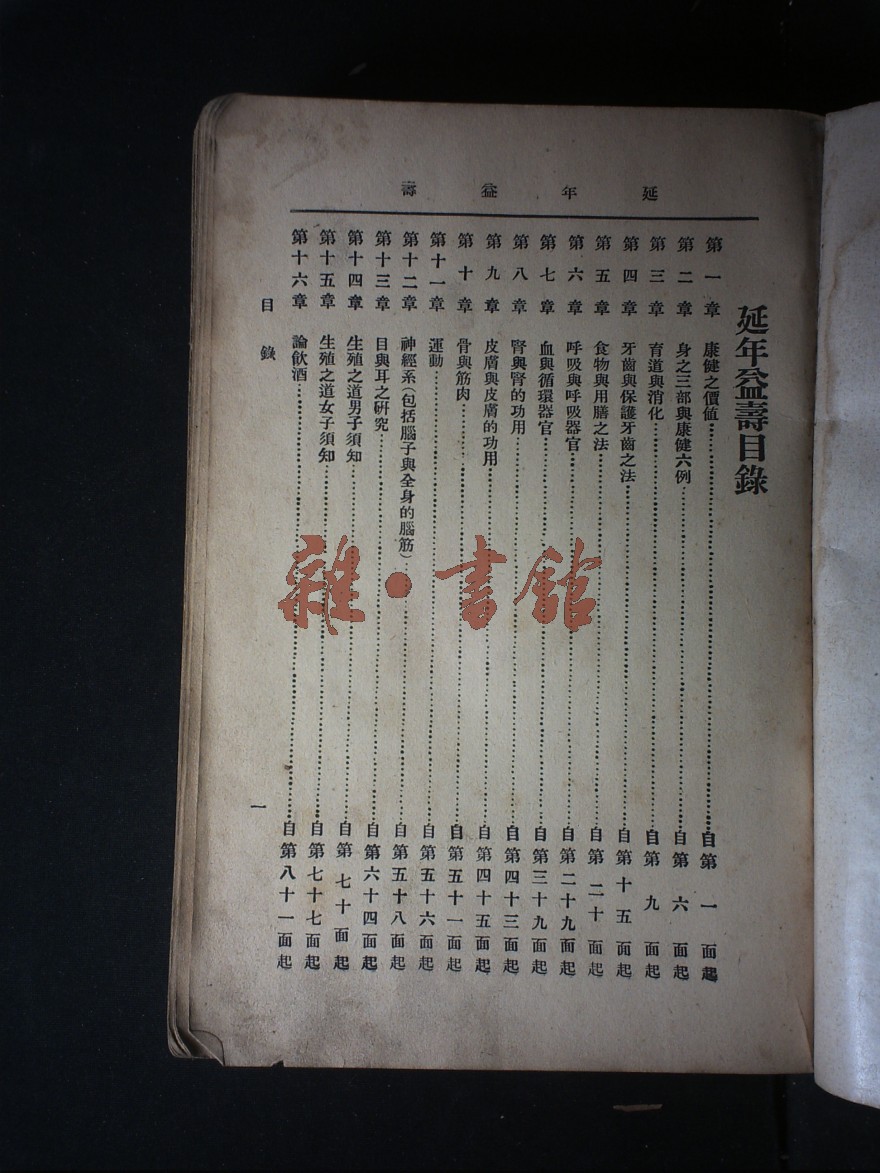 延年益壽
延年益壽目錄
第一章 康健之價值⋯⋯自第一面起
第二章 身之三部與康健六例⋯⋯自第六面起
第三章 育道與消化⋯⋯自第九面起
第四章 牙齒與保護牙齒之法⋯⋯自第十五面起
第五章 食物與用膳之法⋯⋯自第二十面起
第六章 呼吸與呼吸器官⋯⋯自第二十九面起
第七章 血與循環器官⋯⋯自第三十九面起
第八章 腎與腎的功用⋯⋯自第四十三面起
第九章 皮膚與皮膚的功用⋯⋯自第四十五面起
第十章 骨與筋肉⋯⋯自第五十一面起
第十一章 運動⋯⋯自第五十六面起
第十二章 神經系(包括腦子與全身的腦筋)⋯⋯自第五十八面起
第十三章 目與耳之研究⋯⋯自第六十四面起
第十四章 生殖之道男子須知⋯⋯自第七十面起
第十五章 生殖之道女子須知⋯⋯自第七十七面起
第十六章 論飲酒⋯⋯自第八十一面起
目錄 一
雜·書館